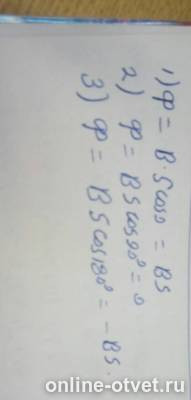 1) Ф = B·S cos 0 = BS
2) Ф = BS cos 90° = 0
3) Ф = BS cos 180° = -BS.
online-otvet.ru